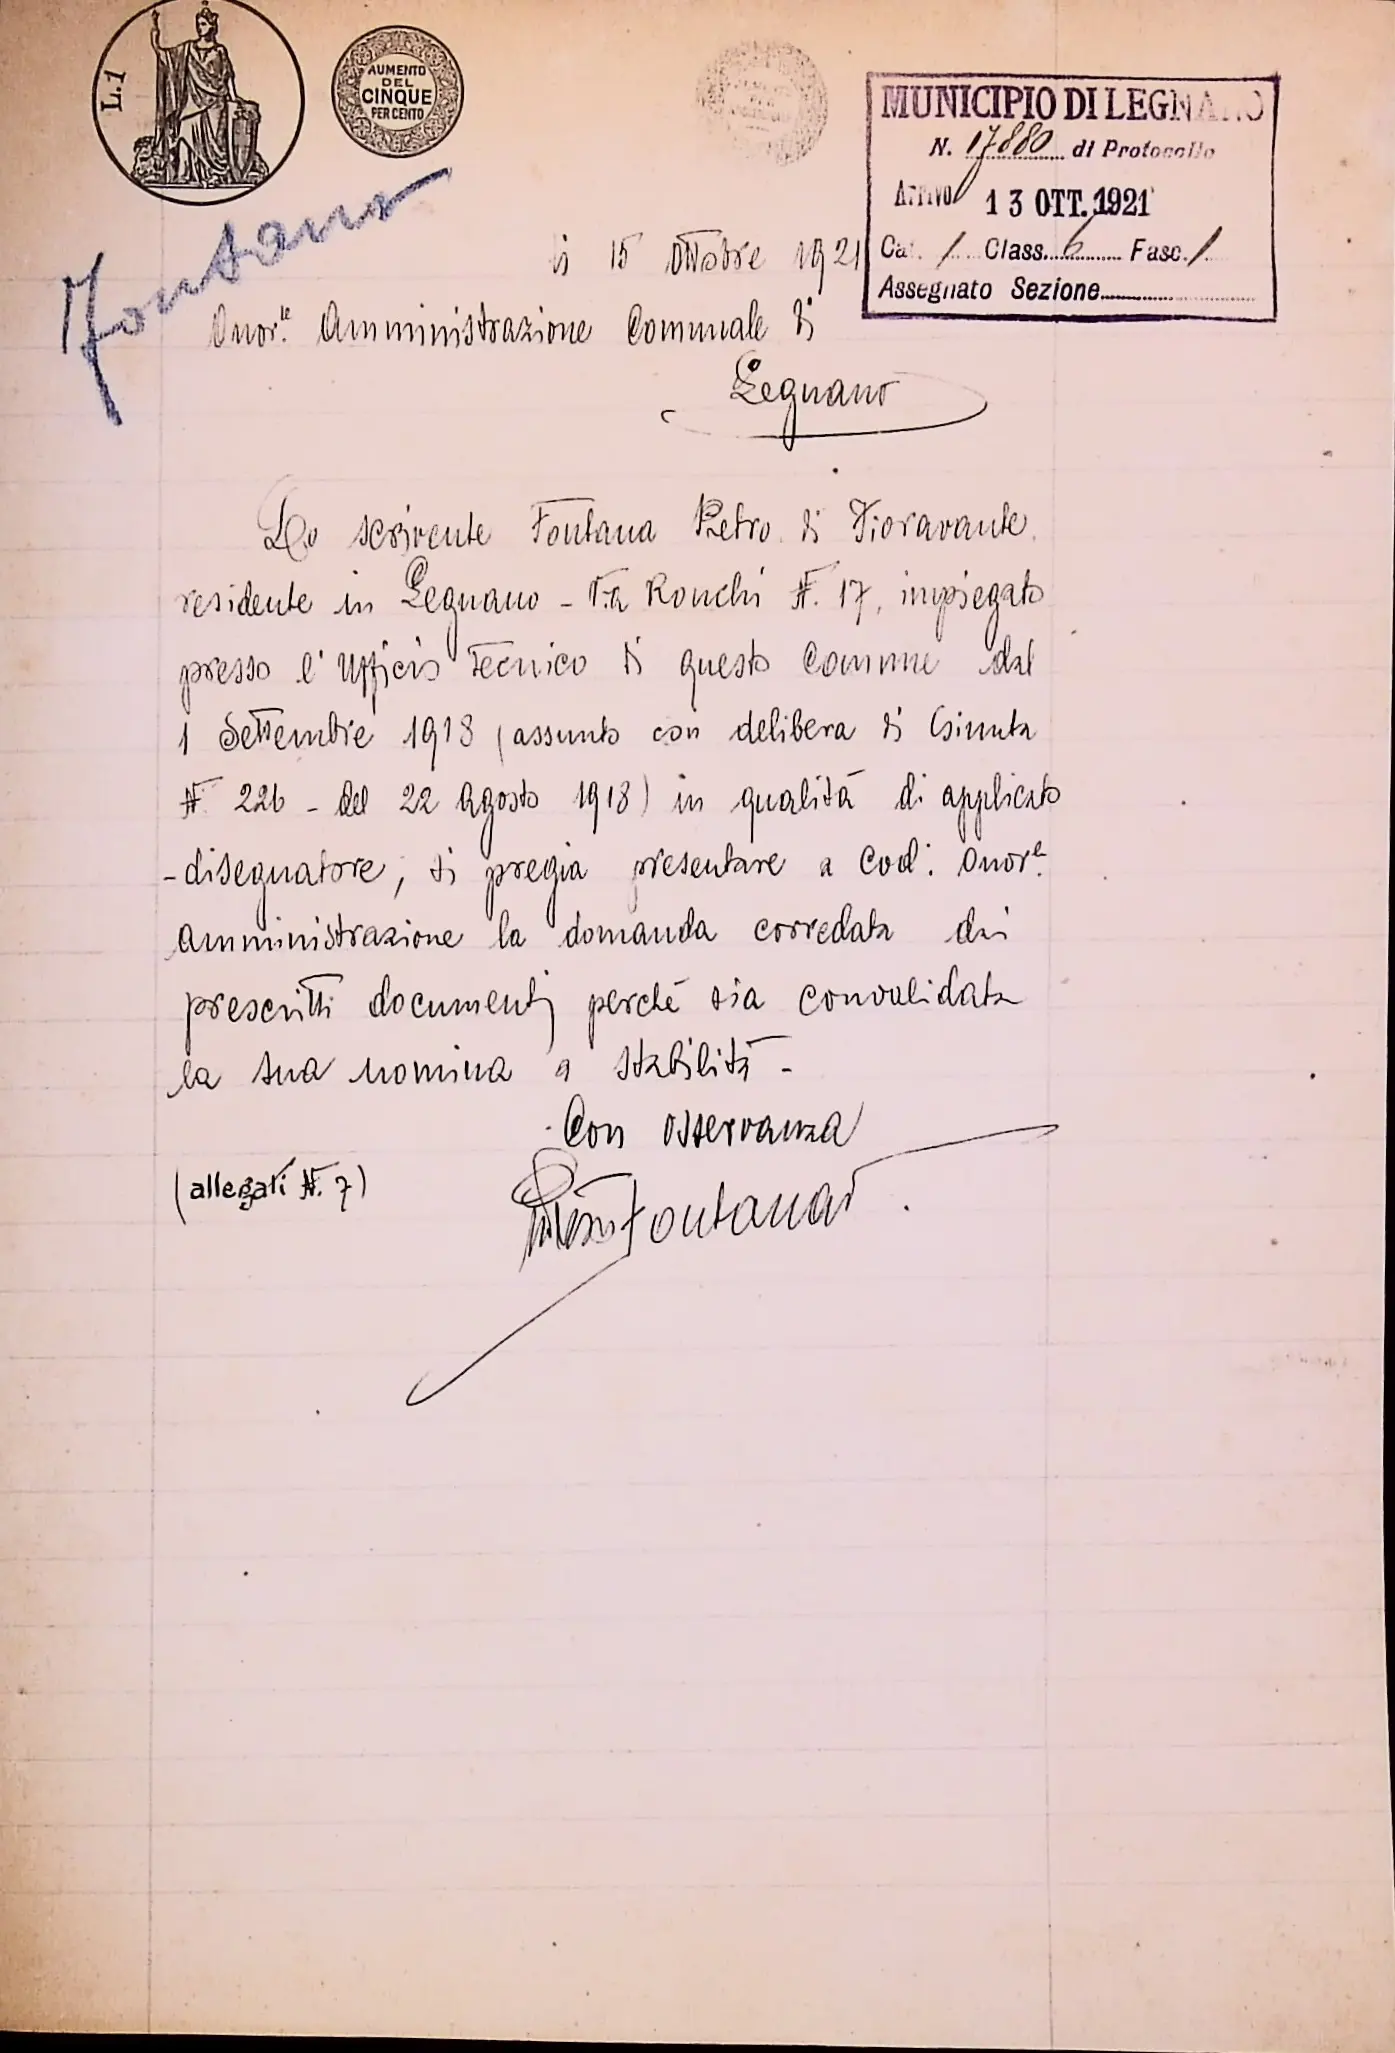 L.1
AUMENTO
DEL
CINQUE
PER CENTO
MUNICIPIO DI LEGNANO
N. 17880 di Protocollo
Arrivo 13 OTT. 1921
Cat. 1 Class. 6 Fasc. 1
Assegnato Sezione
Fontana
li 15 Ottobre 1921
Onor.le Amministrazione Comunale di
Legnano
Lo scrivente Fontana Pietro di Fioravante
residente in Legnano - Via Ronchi N. 17, impiegato
presso l'Ufficio Tecnico di questo Comune dal
1 Settembre 1918 (assunto con delibera di Giunta
N. 226 - del 22 Agosto 1918) in qualità di applicato
-disegnatore, si pregia presentare a Cod: Onor.e
Amministrazione la domanda corredata dei
prescritti documenti perché sia convalidata
la sua nomina a stabilità -
Con osservanza
(allegati N. 7)
Fontana